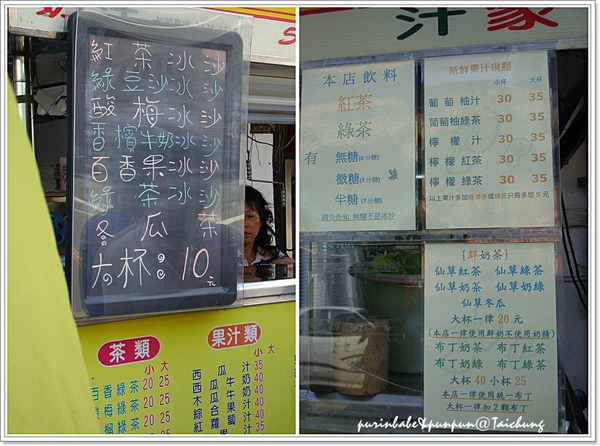 紅茶冰沙
綠豆沙冰沙
酸梅冰沙
香檳牛奶冰沙
百香果冰沙
綠茶冰沙
冬瓜茶
大杯:10元
茶類
小 大
綠茶 20 25
香綠茶 20 25
梅綠茶 20 25
果汁類
小 大
本店飲料
紅茶
綠茶
有 無糖(0分糖)
微糖(3分糖)
半糖(7分糖)
請先告知 無糖不是冰沙
新鮮果汁現壓
小杯 大杯
葡萄柚汁 30 35
葡萄柚綠茶 30 35
檸檬汁 30 35
檸檬紅茶 30 35
檸檬綠茶 30 35
{鮮奶茶}
仙草紅茶 仙草綠茶
仙草奶茶 仙草奶綠
仙草冬瓜
大杯一律20元
(本店一律使用鮮奶不使用奶精)
布丁奶茶 布丁紅茶
布丁奶綠 布丁綠茶
大杯40小杯25
本店一律使用統一布丁
大杯一律加2顆布丁
purinbabe&punpun@Taichung